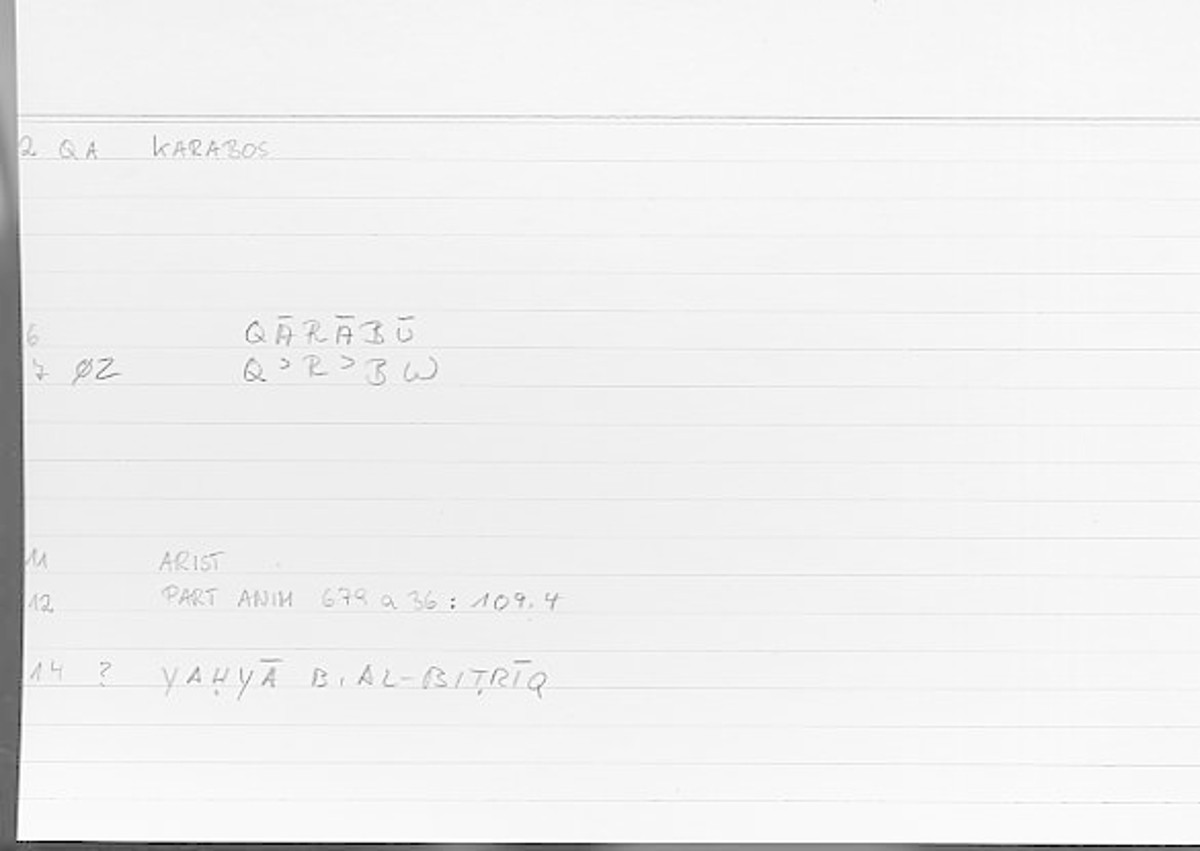 2 QA KARABOS
6 QĀRĀBŪ
7 ØZ Q > R > B W
11 ARIST
12 PART ANIM 679 a 36 : 109.4
14 ? YAḤYĀ B. AL-BIṬRĪQ